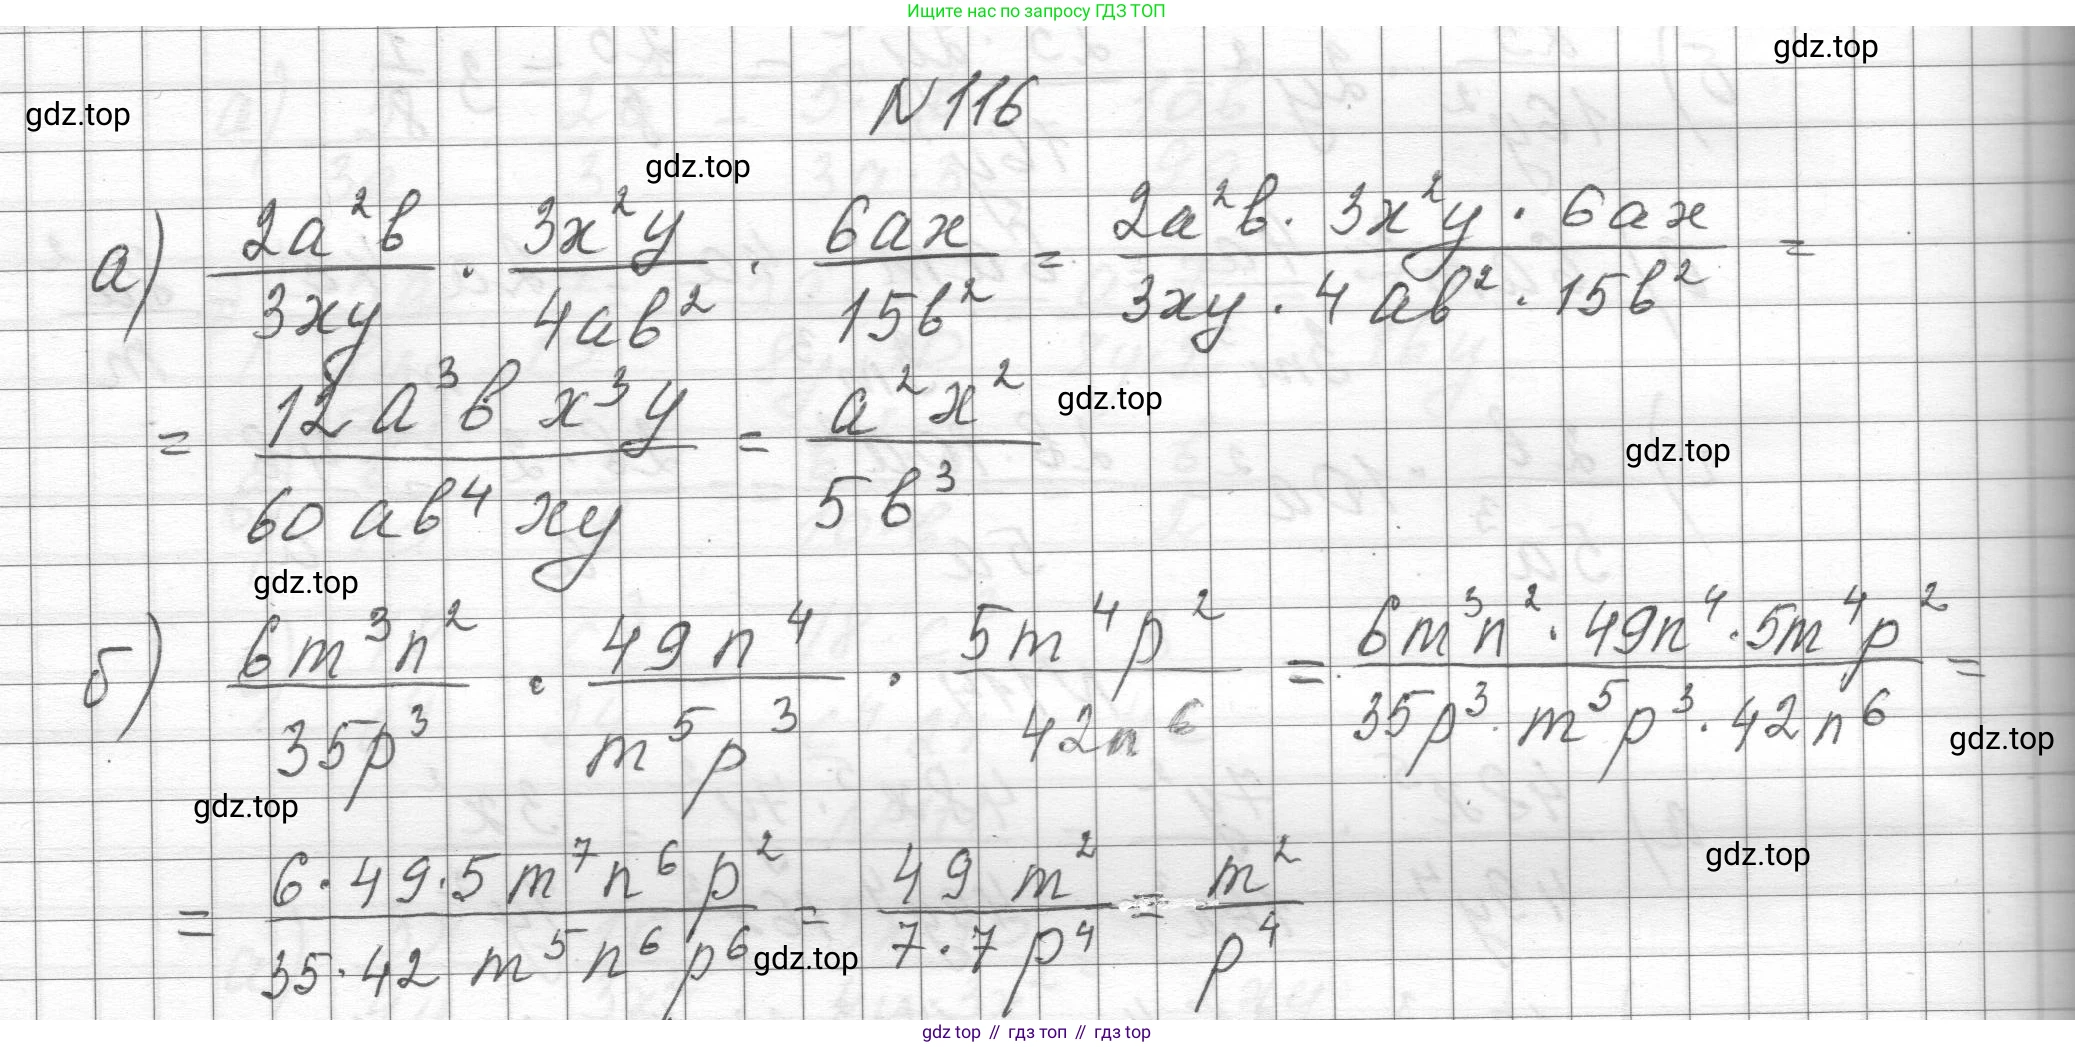 Ищите нас по запросу ГДЗ ТОП
gdz.top
gdz.top
N 116
gdz.top
а) 2a²b/3xy · 3x²y/4ab² · 6ax/15b² = 2a²b · 3x²y · 6ax/3xy · 4ab² · 15b² =
= 12a³b x³y/60ab⁴xy = a²x²/5b³
gdz.top
gdz.top
gdz.top
б) 6m³n²/35p³ · 49n⁴/m⁵p³ · 5m⁴p²/42n⁶ = 6m³n² · 49n⁴ · 5m⁴p²/35p³ · m⁵p³ · 42n⁶ =
gdz.top
gdz.top
gdz.top
= 6·49·5m⁷n⁶p²/35·42m⁵n⁶p⁶ = 49m²/7·7p⁴ = m²/p⁴
gdz.top
gdz top // гдз топ // гдз top